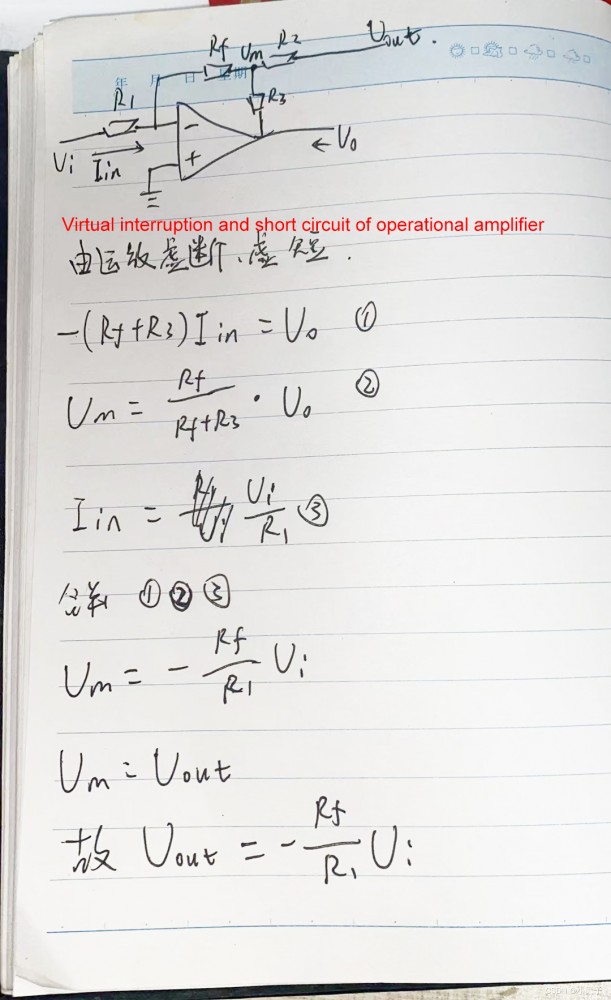 年 月 日 星期
Rf Um R2 Uout.
R1
R3
−
+
Ui Iin
← Uo
Virtual interruption and short circuit of operational amplifier
由运放虚断、虚短.
-(Rf+R3)Iin = Uo ①
Um = Rf/(Rf+R3) · Uo ②
Iin = Ui/R1 ③
①②③
Um = - Rf/R1 Ui
Um = Uout
故 Uout = - Rf/R1 Ui